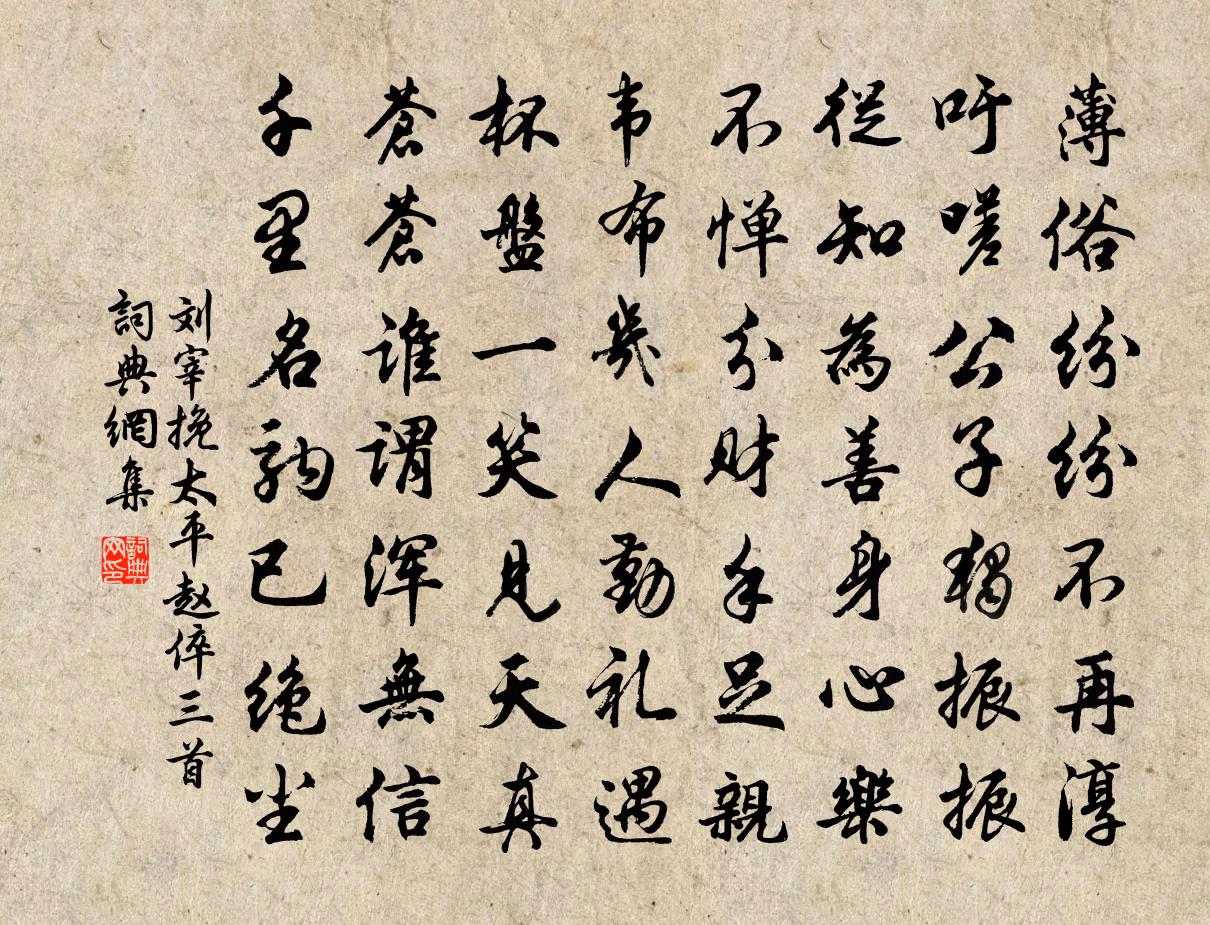 薄俗纷纷不再淳
吁嗟公子独振振
從知為善身心樂
不惮分财手足親
韦布幾人勤礼遇
杯盤一笑見天真
蒼蒼谁谓浑無信
千里名驹已绝尘
刘宰挽太平赵倅三首
詞典網集
詞典網印